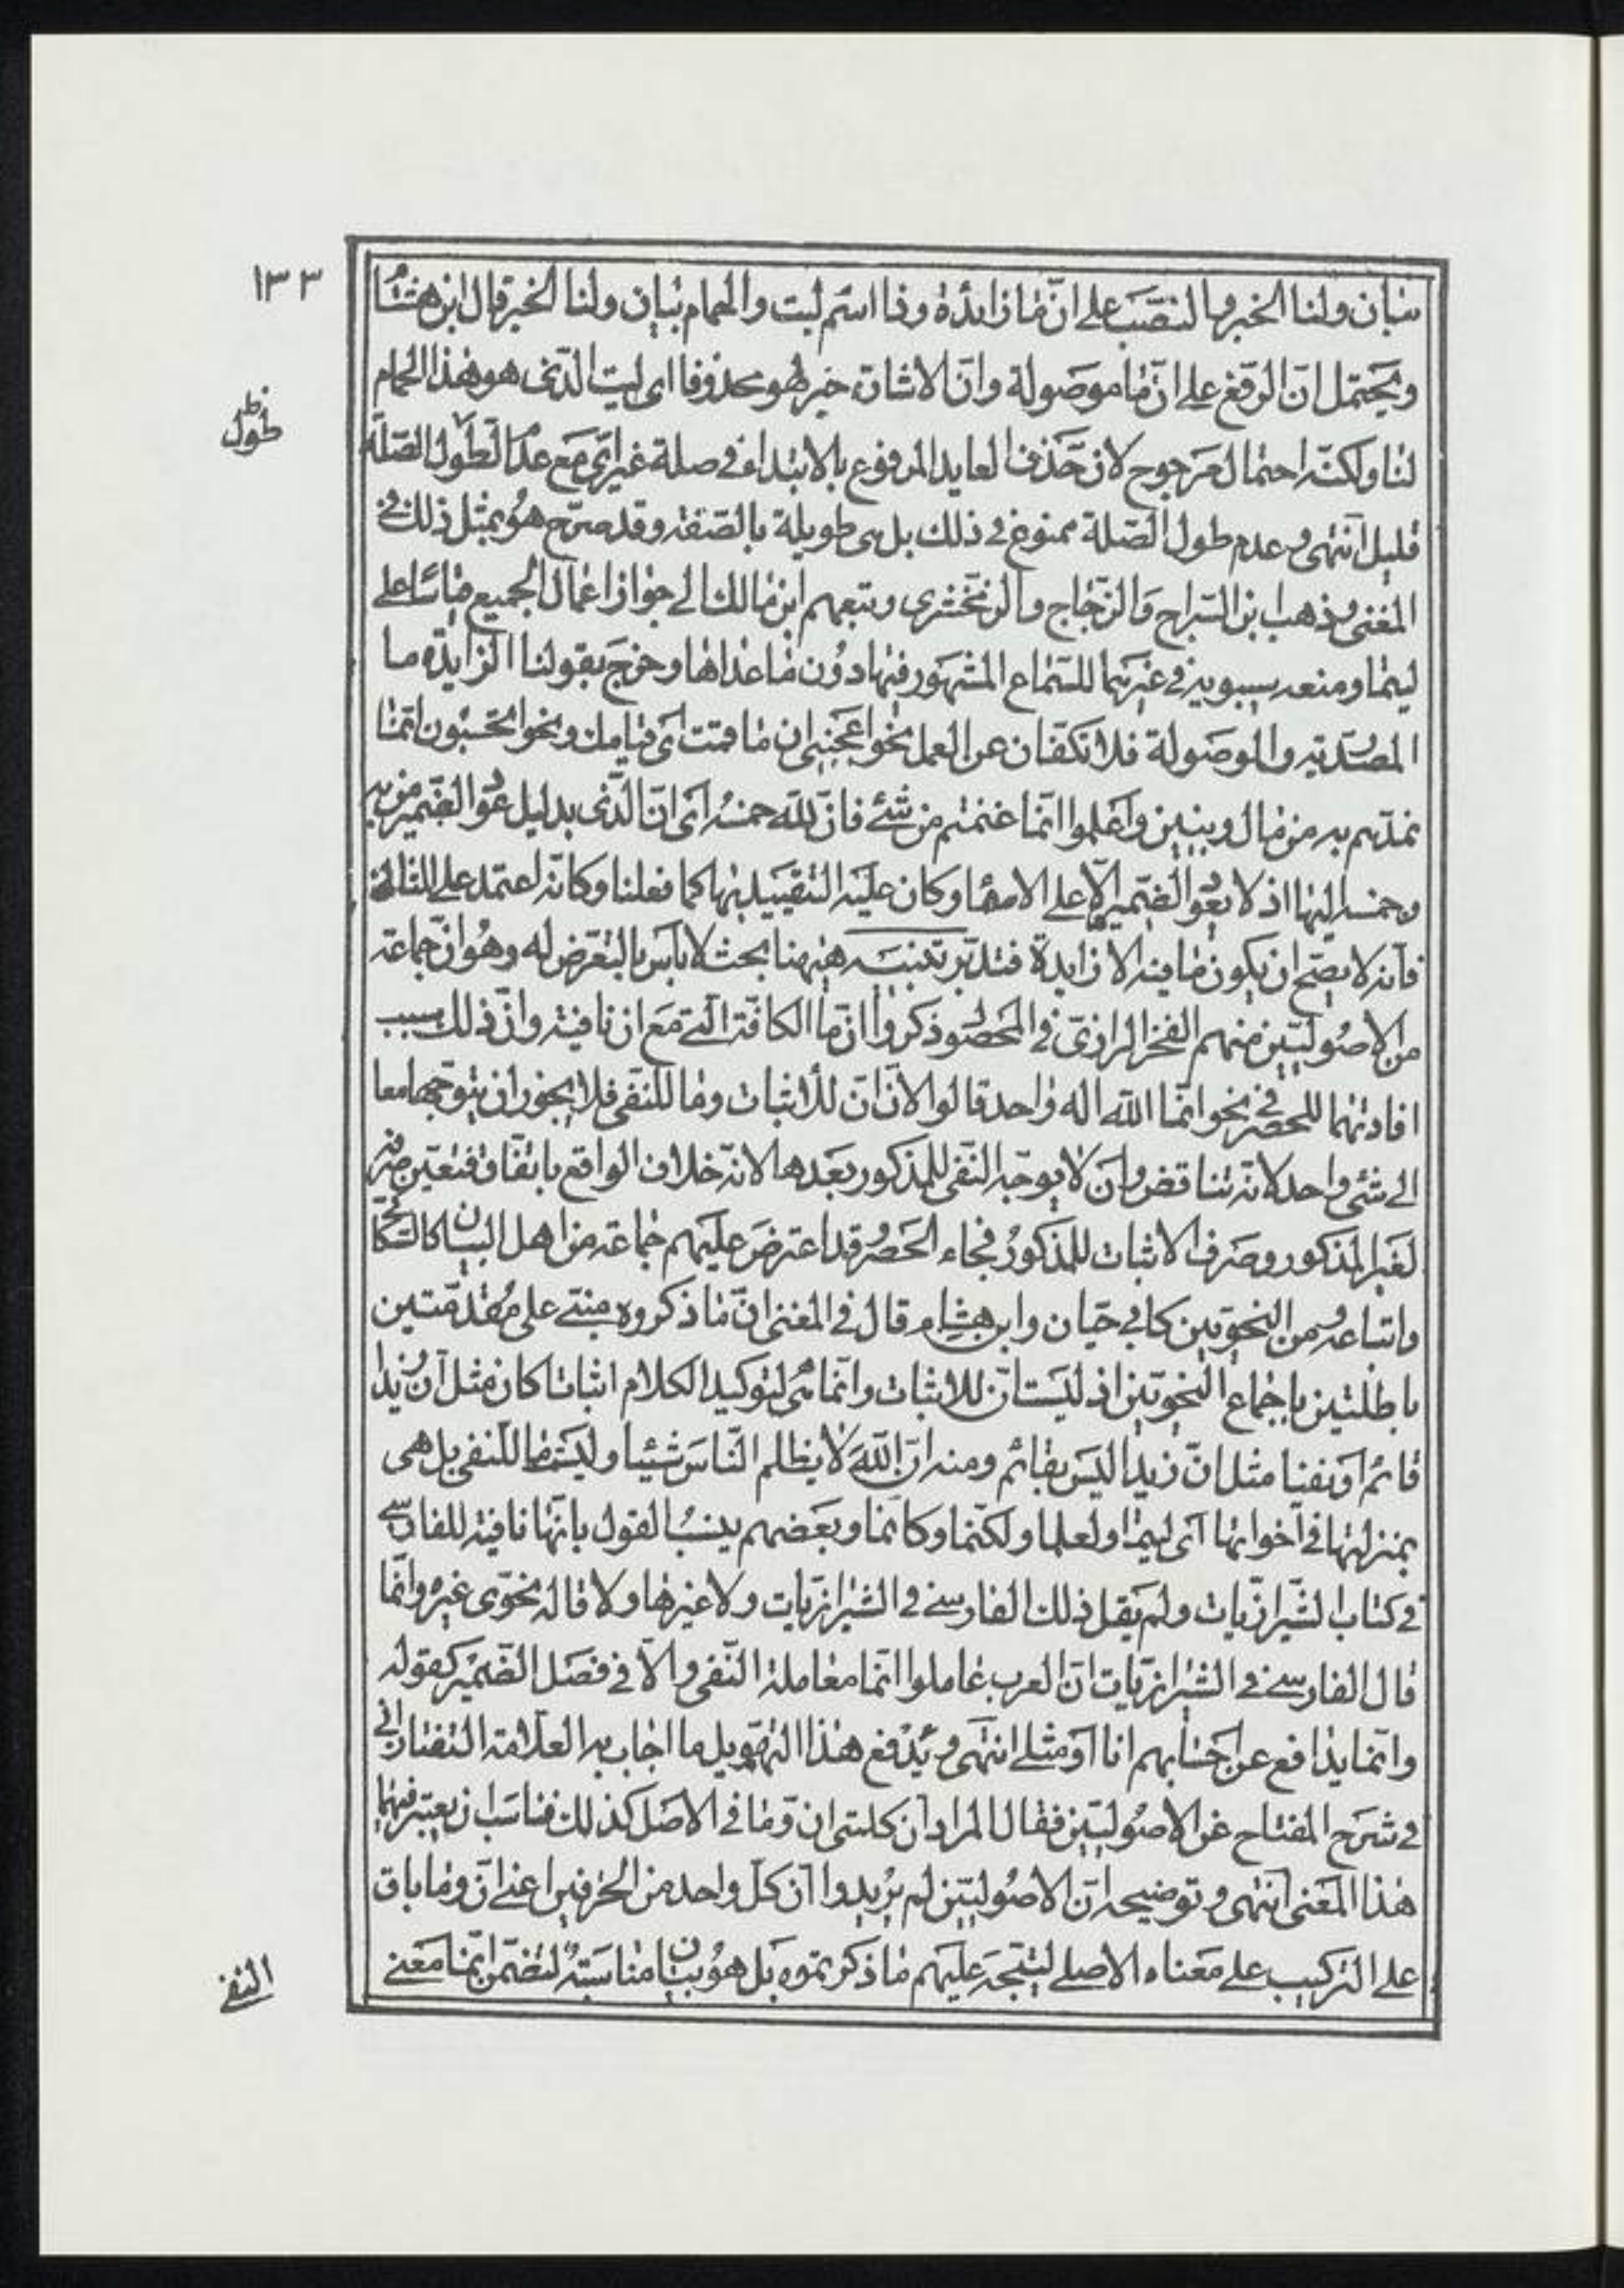 ١٣٣
بيان ولنا الخبر وبالنصب على انّ ما زائدة وذا اسم ليت والحمام بيان ولنا الخبر قال ابن هشام
ويحتمل انّ الرفع على انّ ما موصولة وانّ الاشارة خبر لهو محذوفا اى ليت الذى هو هذا الحمام
لنا ولكنّه احتمال مرجوح لان حذف العايد المرفوع بالابتداء فى صلة غير اىّ مع عدم طول الصلة
طول
قليل انتهى وعدم طول الصلة ممنوع فى ذلك بل هى طويلة بالصفة وقد صرّح هو بمثل ذلك فى
المغنى وذهب ابن السراج والزجاج والزمخشرى وتبعهم ابن مالك الى جواز اعمال الجميع قياسا على
ليتما ومنعه سيبويه فى غيرهما للسماع المشهور فيها دون ما عداها وخرج بقولنا الزايدة ما
المصدرية والموصولة فلا تكفان عن العمل نحو اعجبنى ان ما قمت اى قيامك ونحو ايحسبون انّما
نمدّهم به من مال وبنين واعلموا انّما غنمتم من شئ فانّ للّه خمسه اى انّ الذى بدليل عود الضمير من به
وخمسه اليها اذ لا يعود الضمير الّا على الاسماء وكان عليه التقييد بها كما فعلنا وكانّه اعتمد على المثال
فانه لا يصح ان يكون ما فيه الا زايدة فتدبّر تنبيه هيهنا بحث لا باس بالتعرض له وهو انّ جماعة
من الاصوليّين منهم الفخر الرازى فى المحصول ذكروا انّ ما الكافّة الّتى مع ان نافية وانّ ذلك سبب
افادتهما للحصر فى نحو انّما اللّه اله واحد قالوا لانّ انّ للاثبات وما للنفى فلا يجوز ان يتوجّها معا
الى شئ واحد لانّه تناقض وان لا يوجّه النفى للمذكور بعدها لانّه خلاف الواقع باتفاق فتعيّن صرفه
لغير المذكور وصرف الاثبات للمذكور فجاء الحصر وقد اعترض عليهم جماعة من اهل البيان كالسكاكى
واتباعه ومن النحويّين كابى حيّان وابن هشام قال فى المغنى انّ ما ذكروه مبنى على مقدمتين
باطلتين باجماع النحويّين اذ ليست انّ للاثبات وانّما هى لتوكيد الكلام اثباتا كان مثل انّ زيدا
قائم او نفيا مثل انّ زيدا ليس بقائم ومنه انّ اللّه لا يظلم النّاس شيئا وليست ما للنفى بل هى
بمنزلتها فى اخواتها اى ليتما ولعلما ولكنّما وكانّما وبعضهم ينسب القول بانّها نافية للفارسى
فى كتاب الشيرازيّات ولم يقل ذلك الفارسى فى الشيرازيّات ولا غيرها ولا قاله نحوى غيره وانّما
قال الفارسى فى الشيرازيّات انّ العرب عاملوا انّما معاملة النّفى والّا فى فصل الضمير كقوله
وانّما يدافع عن احسابهم انا او مثلى انتهى ويدفع هذا التهويل ما اجاب به العلّامة التفتازانى
فى شرح المفتاح عن الاصوليّين فقال المراد ان كلمتى ان وما فى الاصل كذلك فناسب ان يعتبر فيهما
هذا المعنى انتهى وتوضيحه انّ الاصوليّين لم يريدوا انّ كلّ واحد من الحرفين اعنى انّ وما باق
على التركيب على معناه الاصلى ليتّجه عليهم ما ذكرتموه بل هو بيان مناسبة لتضمّن انّما معنى
النفى